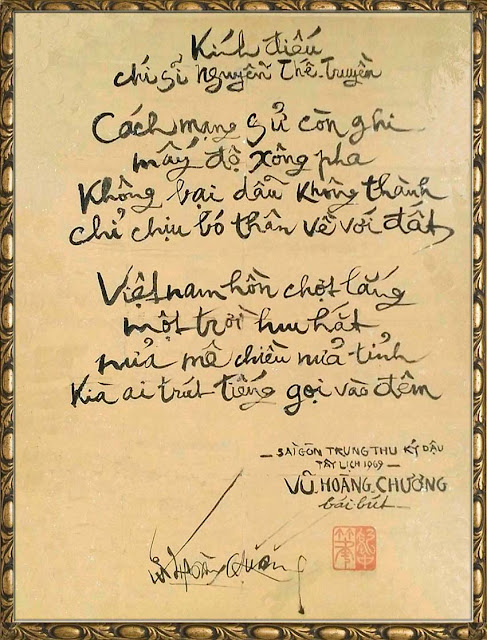 Kính điếu
chí sĩ Nguyễn Thế-Truyền
Cách mạng sử còn ghi
mấy độ xông pha
Không bại dẫu không thành
chỉ chịu bó thân về với đất
Việt nam hồn chợt lắng
một trời hiu hắt
nửa mê chiều nửa tỉnh
Kìa ai trút tiếng gọi vào đêm
— SAIGON TRUNG THU KỶ DẬU
TÂY LỊCH 1969 —
VŨ HOÀNG CHƯƠNG
bái bút —